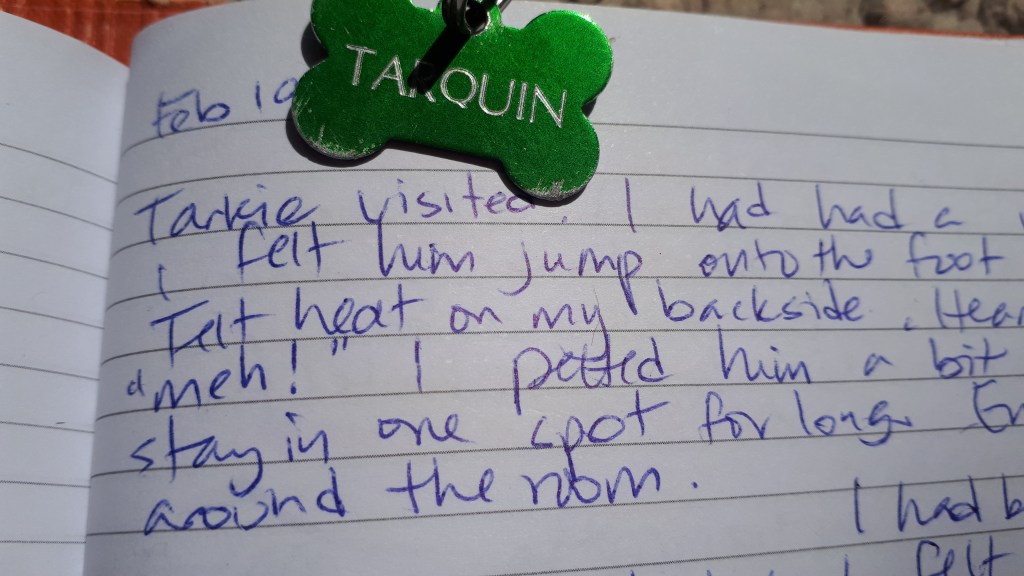 TARQUIN
Feb 19
Tarkie visited. I had had a
I felt him jump onto the foot
Felt heat on my backside. Hear
"meh!" I petted him a bit
stay in one spot for long.
around the room.
I had b
felt